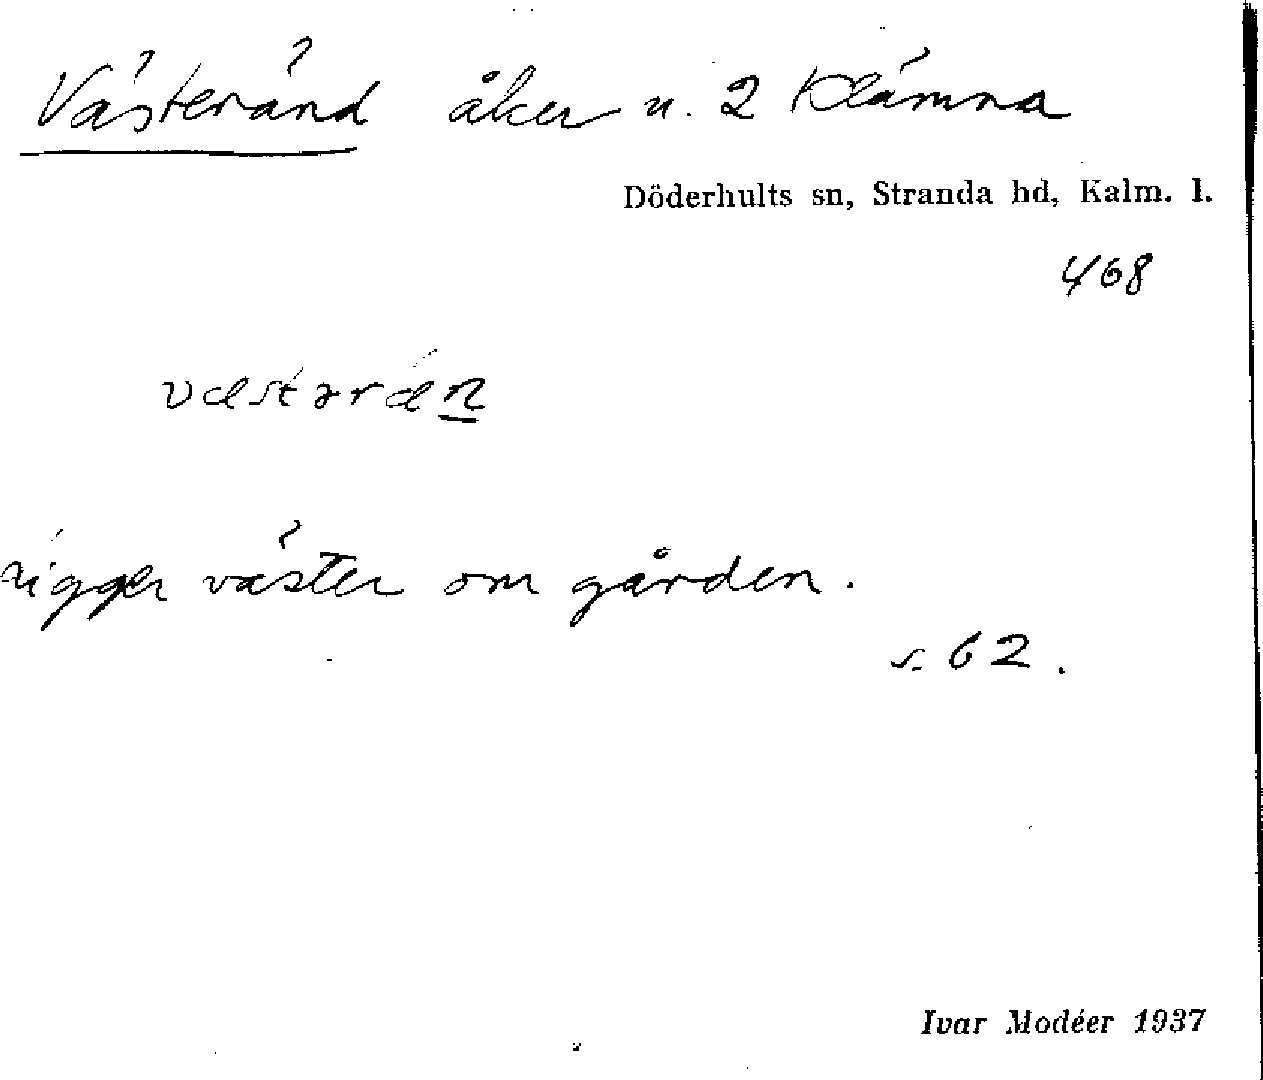 Västeränd åker u. 2 Klämna
Döderhults sn, Stranda hd, Kalm. l.
468
væstəræn
ligger väster om gården.
s. 62.
Ivar Modéer 1937